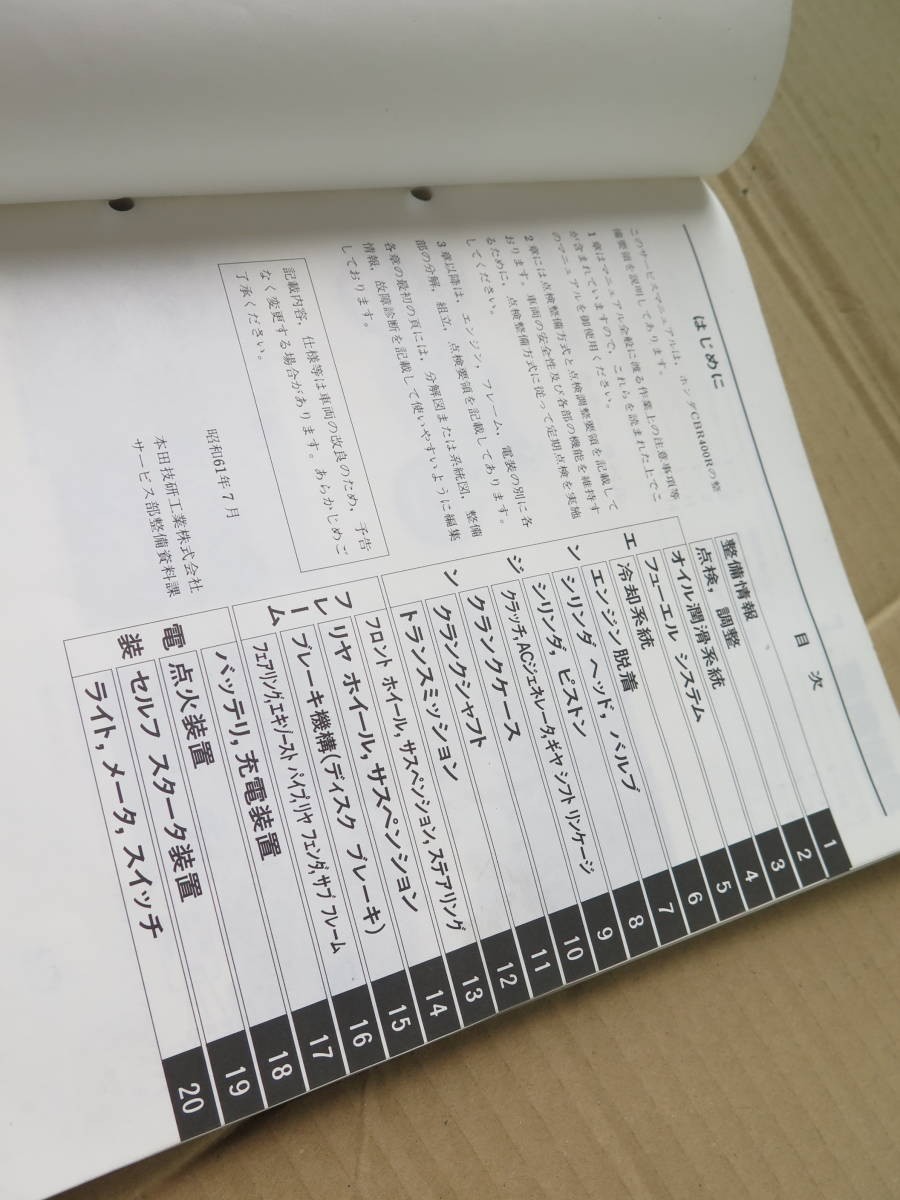 はじめに
このサービスマニュアルは，ホンダCBR400Rの整
備要領を説明してあります。
1章はマニュアル全般に渡る作業上の注意事項等
が含まれていますので，これらを読まれた上でこ
のマニュアルを御使用ください。
2章には点検整備方式と点検調整要領を記載して
おります。車両の安全性及び各部の機能を維持す
るために，点検整備方式に従って定期点検を実施
してください。
3章以降は，エンジン，フレーム，電装の別に各
部の分解，組立，点検要領を記載してあります。
各章の最初の頁には，分解図または系統図，整備
情報，故障診断を記載して使いやすいように編集
しております。
記載内容，仕様等は車両の改良のため，予告
なく変更する場合があります。あらかじめご
了承ください。
昭和61年7月
本田技研工業株式会社
サービス部整備資料課
目 次
整備情報 1
点検，調整 2
オイル潤滑系統 3
エンジン
フューエル システム 4
冷却系統 5
エンジン脱着 6
シリンダ ヘッド，バルブ 7
シリンダ，ピストン 8
クラッチ，ACジェネレータ，ギヤ シフト リンケージ 9
クランクケース 10
クランクシャフト 11
トランスミッション 12
フレーム
フロント ホイール，サスペンション，ステアリング 13
リヤ ホイール，サスペンション 14
ブレーキ機構(ディスク ブレーキ) 15
フェアリング，エキゾースト パイプ，リヤ フェンダ，サブ フレーム 16
電装
バッテリ，充電装置 17
点火装置 18
セルフ スタータ装置 19
ライト，メータ，スイッチ 20